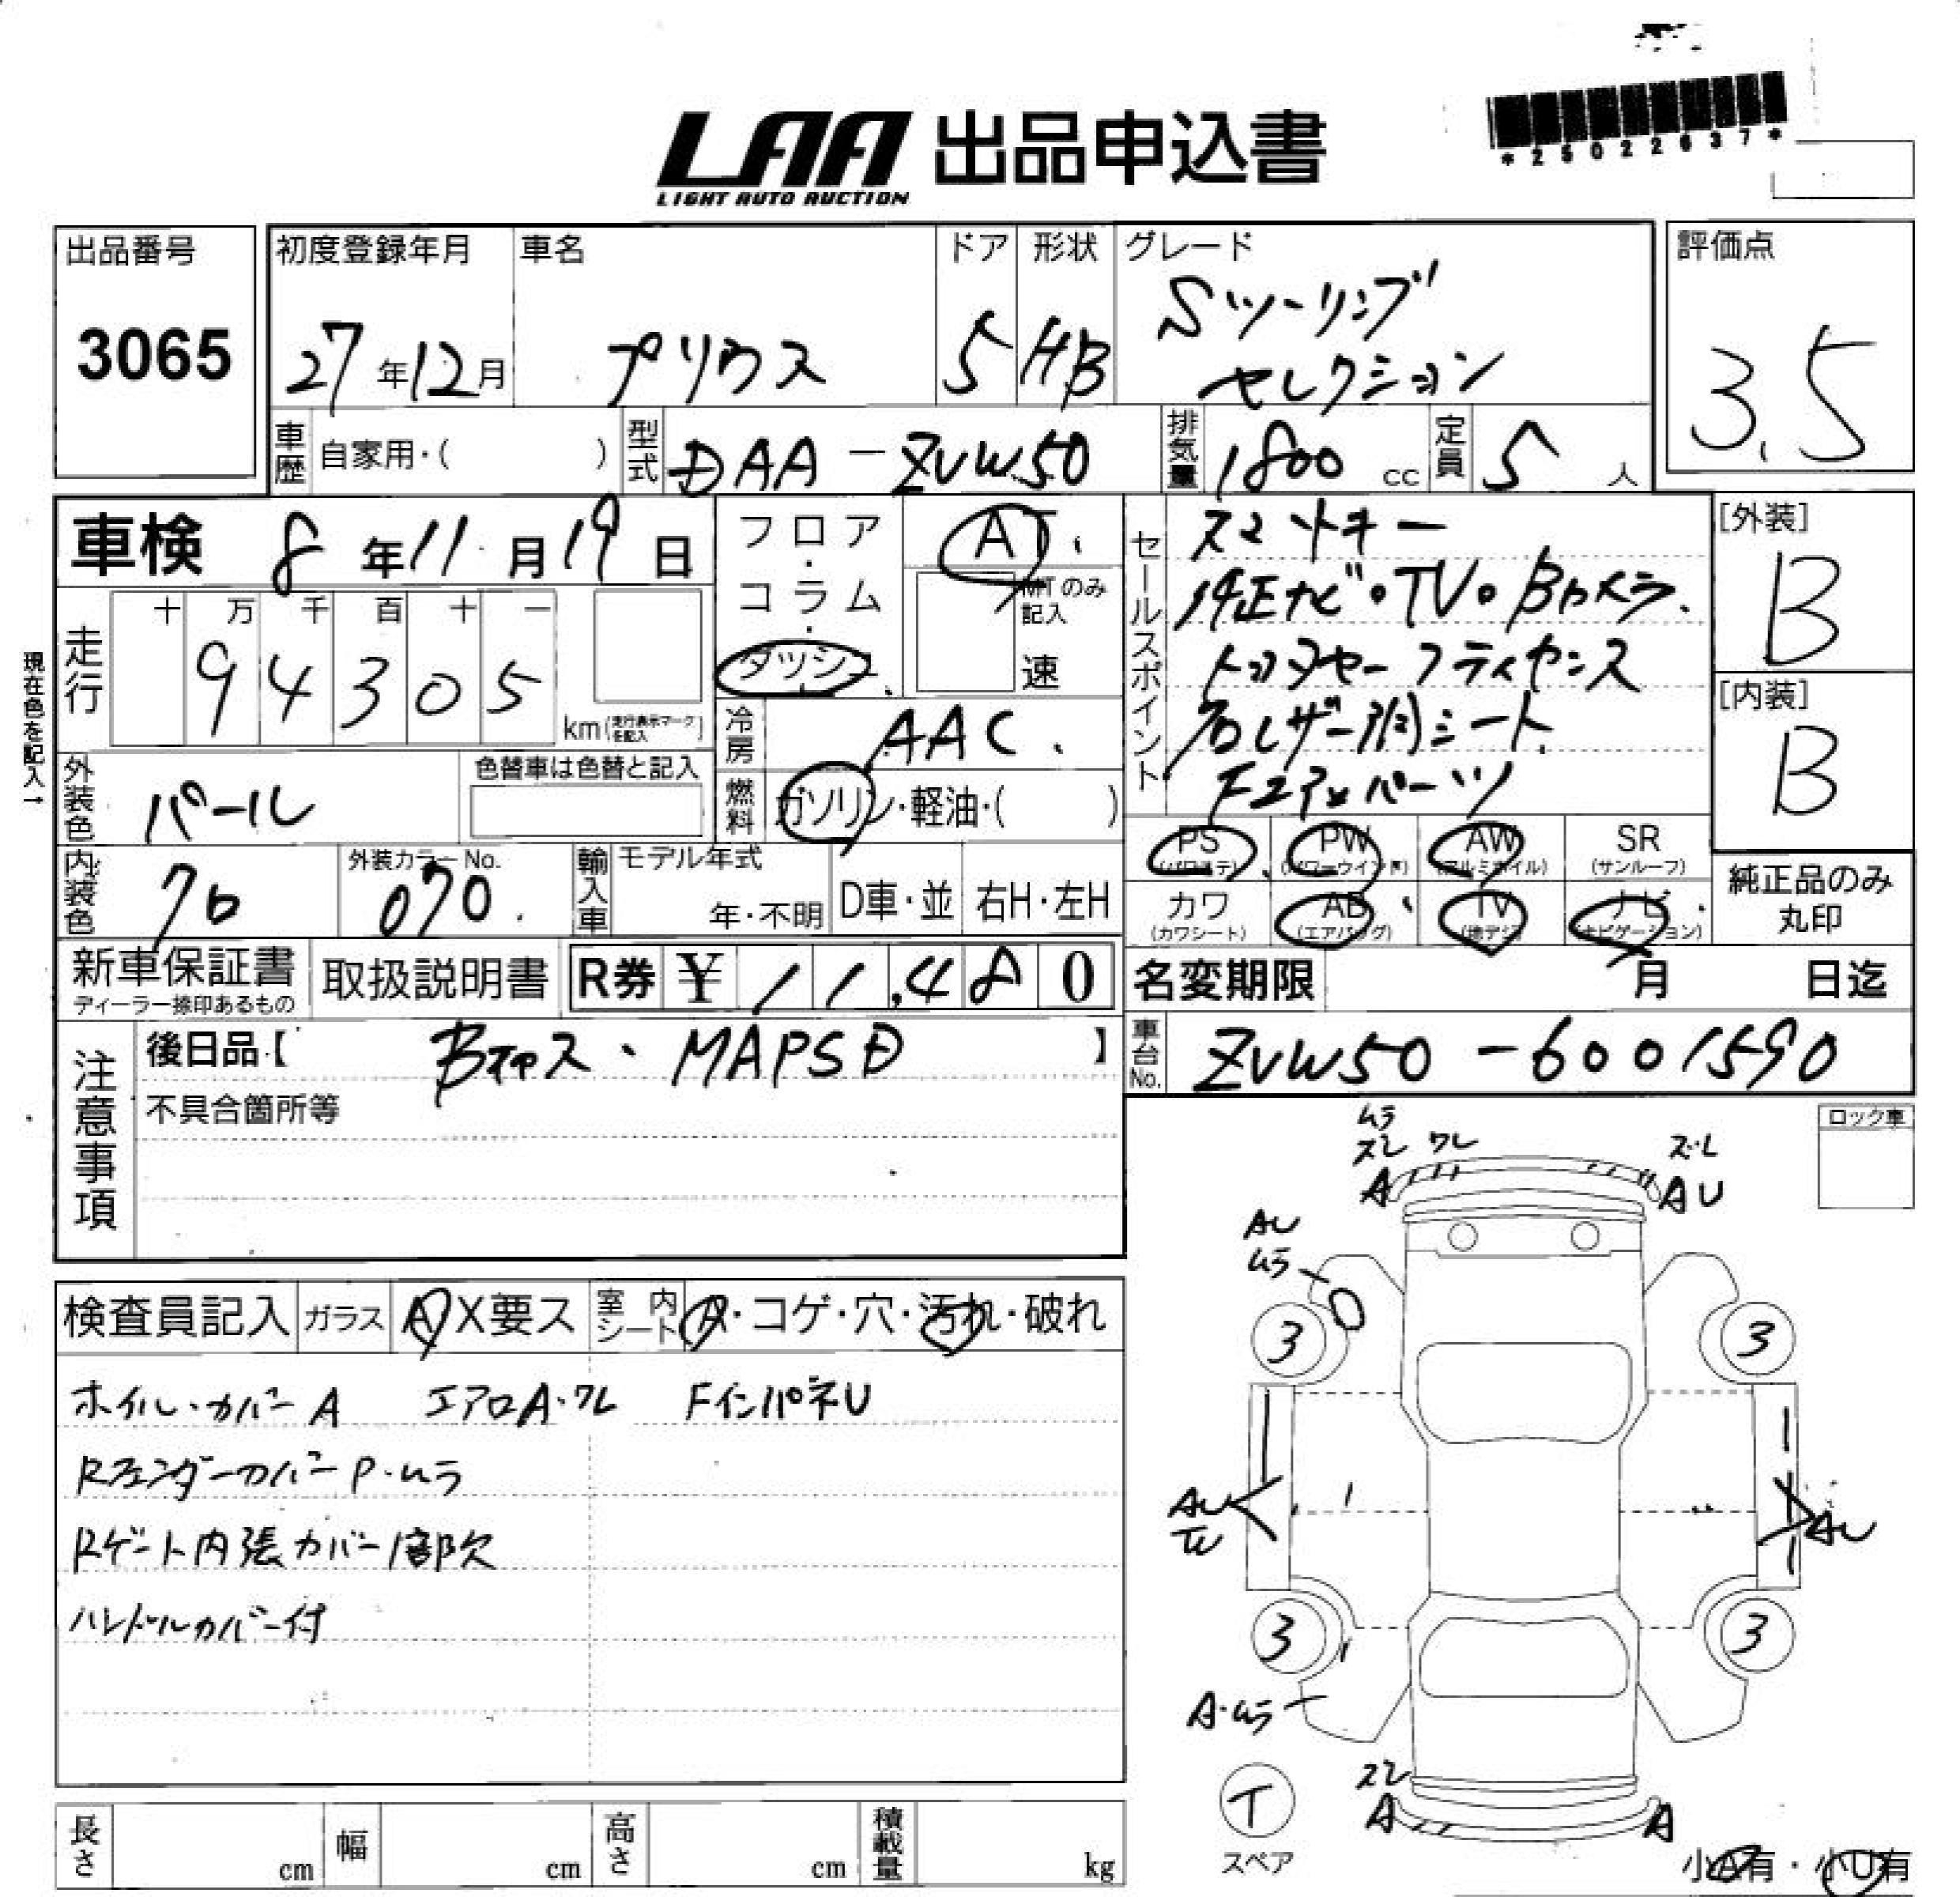 *25022637*
LAA 出品申込書
LIGHT AUTO AUCTION
出品番号
3065
初度登録年月
27年12月
車名
プリウス
ドア
5
形状
HB
グレード
Sツーリング
セレクション
評価点
3.5
車歴 自家用・( )
型式 DAA-ZVW50
排気量 1800 cc
定員 5 人
車検 8年11月19日
フロア・コラム・ダッシュ
AT
MTのみ記入
速
現在色を記入→
走行
十万千百十一
94305
km(走行表示マークを記入)
冷房 AAC
燃料 ガソリン・軽油・( )
外装色 パール
色替車は色替と記入
内装色 クロ
外装カラーNo.
070
輸入車
モデル年式
年・不明
D車・並
右H・左H
セールスポイント
スマートキー
純正ナビ・TV・Bカメラ
トヨタセーフティセンス
シート
[外装]
B
[内装]
B
PS (パワステ)
PW (パワーウインドー)
AW (アルミホイル)
SR (サンルーフ)
カワ (カワシート)
AB (エアバッグ)
TV (地デジ)
ナビ (ナビゲーション)
純正品のみ
丸印
新車保証書
ディーラー捺印あるもの
取扱説明書
R券 ¥11,480
名変期限 月 日迄
注意事項
後日品【 MAPSD 】
不具合箇所等
車台No. ZVW50-6001590
ロック車
検査員記入
ガラス A X要ス
室内シート A・コゲ・穴・汚れ・破れ
ホイル・カバーA エアロA・ワレ FインパネU
Rフェンダーカバー P・ムラ
Rゲート内張カバー1部欠
ハンドルカバー付
ムラ
スレ ワレ
A
スレ
AU
AU
ムラ
3
3
AU
AU
3
3
A・ムラ
スレ
A
A
T
スペア
小A有・小U有
長さ cm
幅 cm
高さ cm
積載量 kg